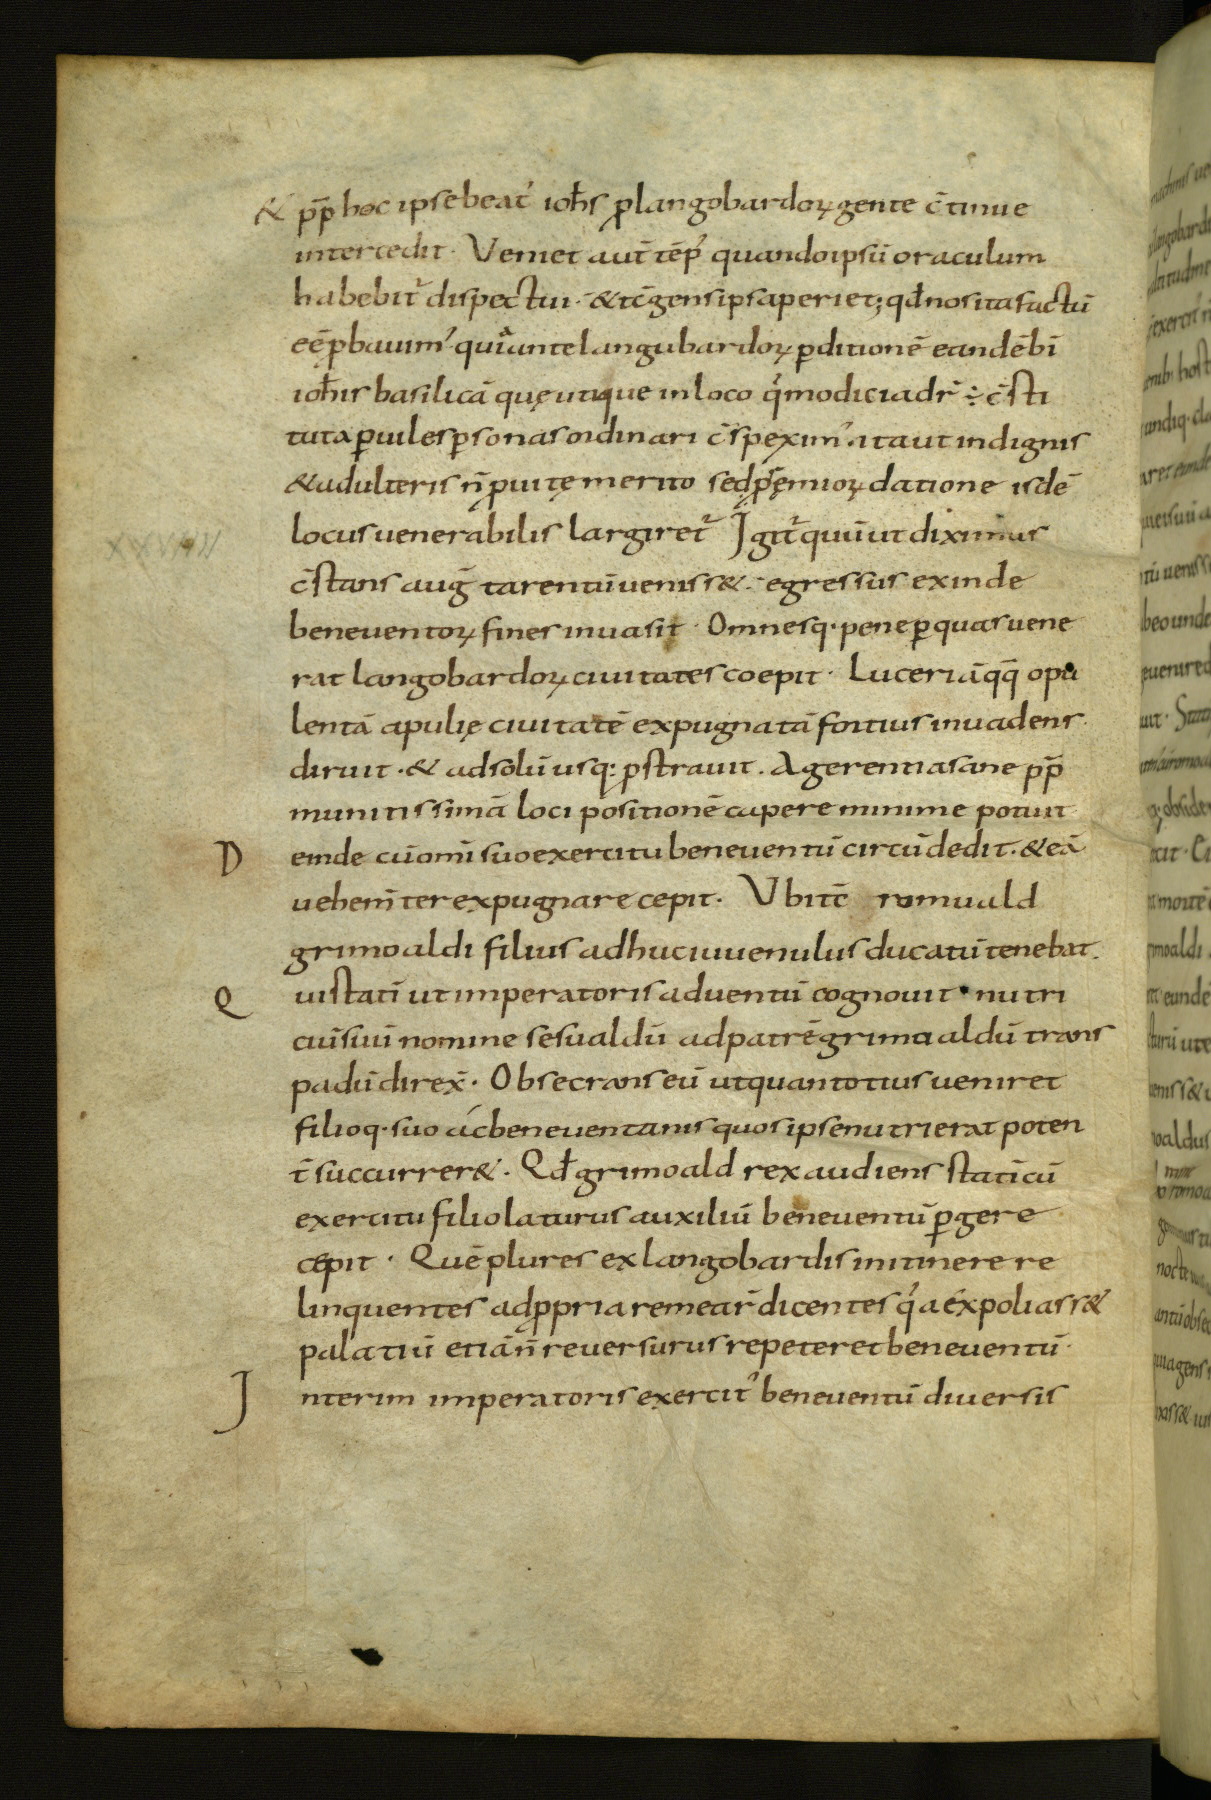 & pp̄ hoc ipse beat᾿ ioħs ꝓ langobardoꝝ gente c̄tinue
intercedit · Veniet aut̄ tēp᾿ quando ipsū oraculum
habebit᾿ dispectui · & tc̄ gens ipsa periet; qđ nos ita factū
eē ꝓbauim᾿ · quia ante langubardoꝝ ꝑditionē eandē bī
ioħis basilicā quę utique in loco q᾿ modicia dr̄ ÷ c̄sti
tuta ꝑ uiles ꝑsonas ordinari c̄speximꝰ · ita ut indignis
& adulteris n̄ ꝓ uitę merito sed p̄ęmioꝝ datione isdē
locus uenerabilis largiret᾿ Igit᾿ quū ut diximus
c̄stans aug̃ tarentū veniss& · egressus exinde
beneventoꝝ fines invasit · Omnesq· pene ꝑ quas vene
rat langobardoꝝ civitates coepit · Luceriā qq̄ opu
lentā apulię civitatē expugnatā fortius invadens ·
diruit · & ad solū usq: ꝓstravit . Agerentia sane pp̄
munitissimā loci positionē capere minime potuit
D einde cū omī suo exercitu beneventū circūdedit · & eā
vehem̄ter expugnare cepit · Vbi tc̄ romuald
grimoaldi filius adhuc iuvenulus ducatū tenebat .
Q ui statī ut imperatoris adventū cognovit · nutri
ciū suū nomine sesualdū ad patrē grimaaldū trans
padū direx̄ · Obsecrans eū ut quantotius veniret
filioq· suo ac beneventanis quos ipse nutrierat poten
t̄ succurrer& · Qđ grimoald rex audiens statī cū
exercitu filio laturus auxiliū beneventū ꝑgere
cepit · Quē plures ex langobardis in itinere re
linquentes ad ꝓpria remear̄ dicentes q᾿a expoliass&
palatiū et iā n̄ reversurus repeteret beneventū ·
I nterim imperatoris exercit᾿ beneventū diversis